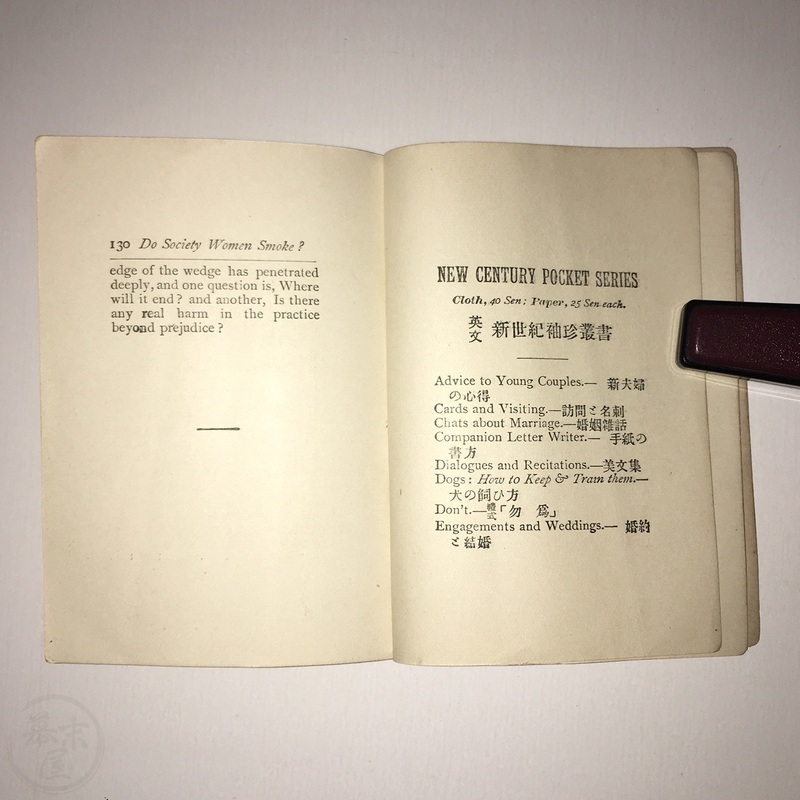 130 Do Society Women Smoke ?
edge of the wedge has penetrated
deeply, and one question is, Where
will it end? and another, Is there
any real harm in the practice
beyond prejudice ?
NEW CENTURY POCKET SERIES
Cloth, 40 Sen; Paper, 25 Sen each.
英文 新世紀袖珍叢書
Advice to Young Couples.— 新夫婦
の心得
Cards and Visiting.—訪問と名刺
Chats about Marriage.—婚姻雑話
Companion Letter Writer.— 手紙の
書方
Dialogues and Recitations.—美文集
Dogs : How to Keep & Train them.—
犬の飼ひ方
Don't.—禮式「勿 爲」
Engagements and Weddings.— 婚約
と結婚
幕末屋